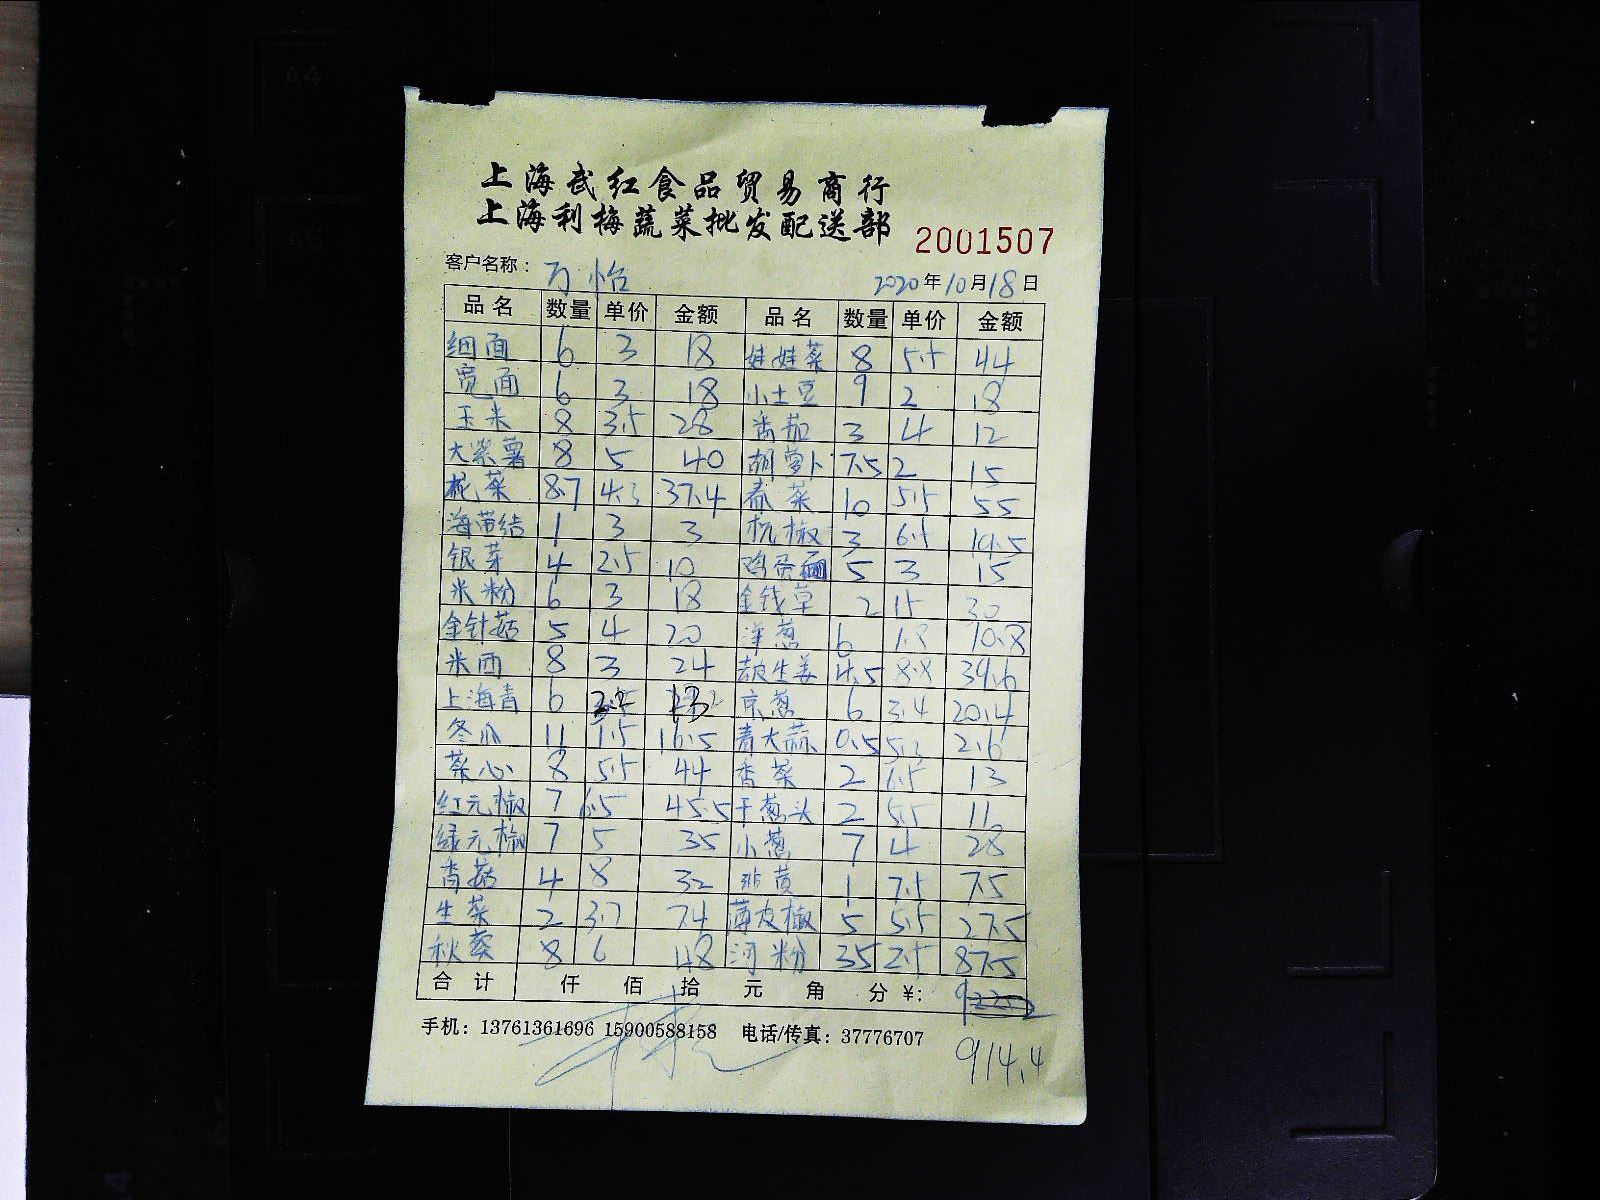 上海武红食品贸易商行
上海利梅蔬菜批发配送部
2001507
客户名称: 万怡 2020年10月18日
品名 数量 单价 金额 品名 数量 单价 金额
细面 6 3 18 娃娃菜 8 5.5 44
宽面 6 3 18 小土豆 9 2 18
玉米 8 3.5 28 番茄 3 4 12
大紫薯 8 5 40 胡萝卜 7.5 2 15
菜 8.7 4.3 37.4 春菜 10 5.5 55
海带结 1 3 3 杭椒 3 6.5 19.5
银芽 4 2.5 10 鸡蛋面 5 3 15
米粉 6 3 18 金钱草 2 15 30
金针菇 5 4 20 洋葱 6 1.8 10.8
米西 8 3 24 去皮生姜 4.5 8.8 39.6
上海青 6 2.2 13.2 京葱 6 3.4 20.4
冬瓜 11 1.5 16.5 青大蒜 0.5 5.2 2.6
菜心 8 5.5 44 香菜 2 6.5 13
红元椒 7 6.5 45.5 干葱头 2 5.5 11
绿元椒 7 5 35 小葱 7 4 28
香菇 4 8 32 韭黄 1 7.5 7.5
生菜 2 3.7 7.4 薄皮椒 5 5.5 27.5
秋葵 8 6 48 河粉 35 2.5 87.5
合计 仟 佰 拾 元 角 分 ¥:
手机: 13761361696 15900588158 电话/传真: 37776707
914.4